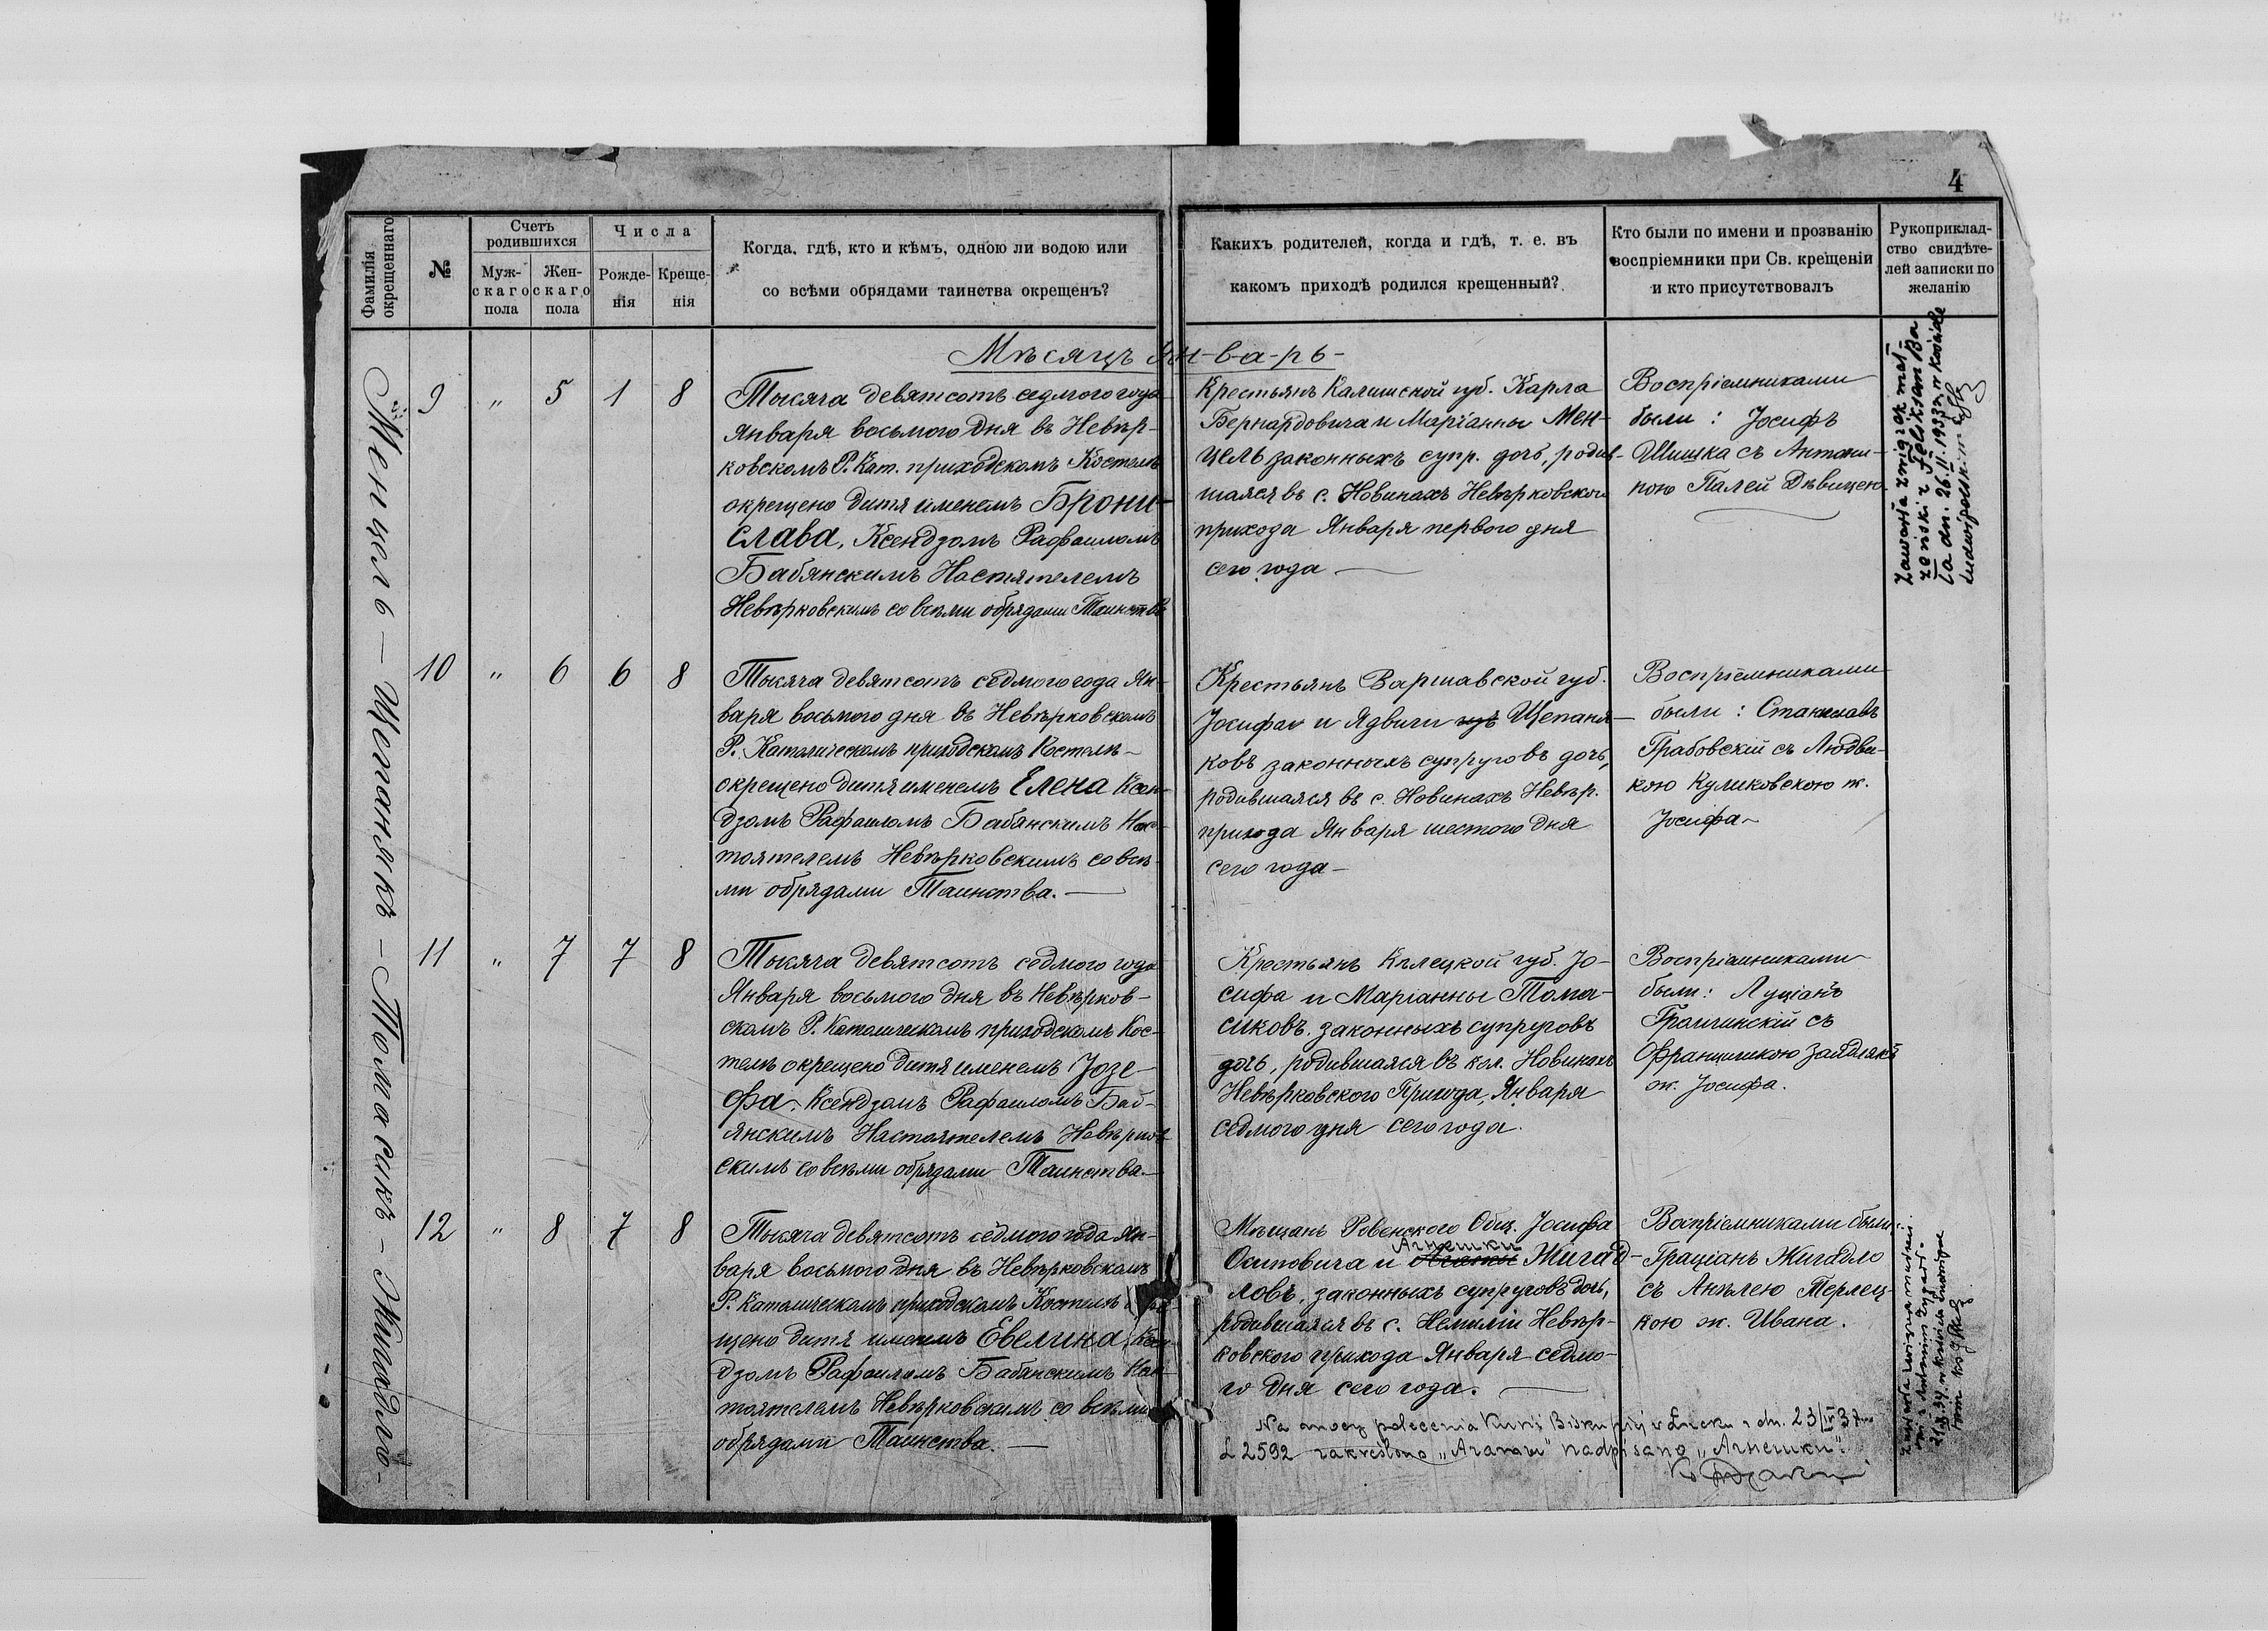 4
Фамилія окрещеннаго
№
Счетъ родившихся
Муж-
скаго
пола
Жен-
скаго
пола
Числа
Рожде-
нія
Креще-
нія
Когда, гдѣ, кто и кѣмъ, одною ли водою или
со всѣми обрядами таинства окрещенъ?
Какихъ родителей, когда и гдѣ, т. е. въ
какомъ приходѣ родился крещенный?
Кто были по имени и прозванію
воспріемники при Св. крещеніи
и кто присутствовалъ
Рукоприклад-
ство свидѣте-
лей записки по
желанію
Мѣсяцъ Ян-в-а-рь-
Менцель - Щепанякъ - Томасикъ - Жигадло -
9 " 5 1 8
Тысяча девятсотъ седмого года
Января восьмого дня въ Невѣр-
ковскомъ Р. Кат. приходскомъ Костелѣ
окрещено дитя именемъ Брони-
слава, Ксендзомъ Рафаиломъ
Бабянскимъ Настятелемъ
Невѣрковскимъ со всѣми обрядами Таинства
Крестьянъ Калишской губ. Карла
Бернардовича и Маріанны Мен-
цель законныхъ супр. дочь, родив-
шаяся въ с. Новинахъ Невѣрковского
прихода Января первого дня
сего года —
Воспріемниками
были: Іосифъ
Шишка съ Антони-
ною Палей Дѣвицею
Zawarła związek mał-
żeński z Feliksem
dn. 26.II.1933
10 " 6 6 8
Тысяча девятсотъ седмого года Ян-
варя восьмого дня въ Невѣрковскомъ
Р. Католическомъ приходскомъ Костелѣ
окрещено дитя именемъ Елена Ксен-
дзомъ Рафаиломъ Бабянскимъ Нас-
тоятелемъ Невѣрковскимъ со всѣ-
ми обрядами Таинства. —
Крестьянъ Варшавской губ.
Іосифа и Ядвиги Щепаня-
ковъ законныхъ супруговъ дочь,
родившаяся въ с. Новинахъ Невѣр.
прихода Января шестого дня
сего года —
Воспріемниками
были: Станиславъ
Грабовскій съ Людви-
кою Куликовскою ж.
Іосифа
11 " 7 7 8
Тысяча девятсотъ седмого года
Января восьмого дня въ Невѣрков-
скомъ Р. Католическомъ приходскомъ Кос-
телѣ окрещено дитя именемъ Іозе-
фа. Ксендзомъ Рафаиломъ Баб-
янскимъ Настоятелемъ Невѣрков
скимъ со всѣми обрядами Таинства. —
Крестьянъ Кѣлецкой губ. Іо-
сифа и Маріанны Тома-
сиковъ законныхъ супруговъ
дочь, родившаяся въ кол. Новинахъ
Невѣрковского Прихода, Января
седмого дня сего года.
Воспріемниками
были: Луціанъ
съ
Францишкою
ж. Іосифа.
12 " 8 7 8
Тысяча девятсотъ седмого года Ян-
варя восьмого дня въ Невѣрковскомъ
Р. Католическомъ приходскомъ Костелѣ окре-
щено дитя именемъ Евелина, Ксен-
дзомъ Рафаиломъ Бабянскимъ Нас-
тоятелемъ Невѣрковскимъ со всѣми
обрядами Таинства. —
Мѣщанъ Ровенского Общ. Іосифа
Агнешки
Осиповича и Агаты Жигад-
ловъ, законныхъ супруговъ дочь,
родившаяся въ с. Немиліи Невѣр-
ковского прихода Января седмо-
го дня сего года. —
Воспріемниками были:
Граціанъ Жигадло
съ Анѣлею Терлец-
кою ж. Ивана.
Na mocy polecenia Kurii Biskupiej w Łucku z dn. 23/IV 37
L 2592 zakreślono „Агаты" nadpisano „Агнешки".